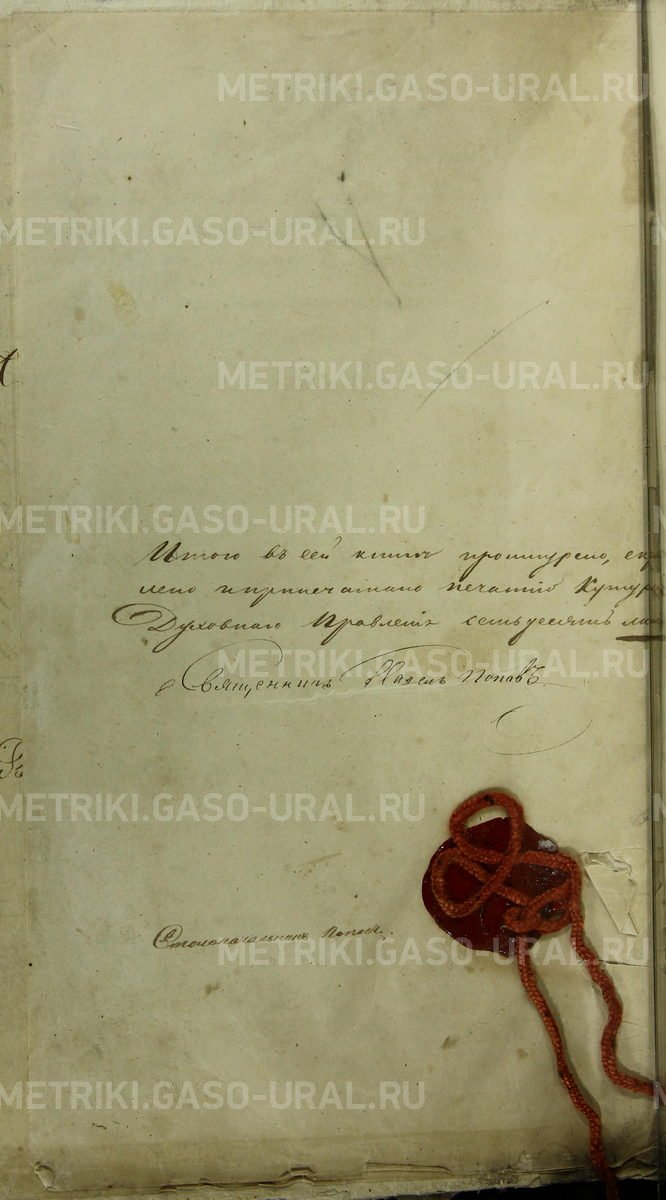 METRIKI.GASO-URAL.RU
METRIKI.GASO-URAL.RU
METRIKI.GASO-URAL.RU
METRIKI.GASO-URAL.RU
Итого въ сей книгѣ прошнурено, скр
лено и припечатано печатію Кунгур
Духовнаго Правленія семьдесятъ
METRIKI.GASO-URAL.RU
Священникъ Павелъ Поповъ.
METRIKI.GASO-URAL.RU
Столоначальникъ Поповъ
METRIKI.GASO-URAL.RU
METRIKI.GASO-URAL.RU